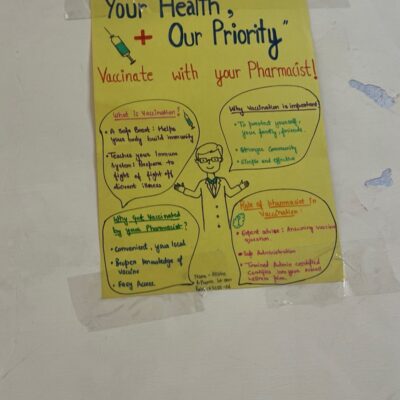 Your Health,
+ Our Priority"
Vaccinate with your Pharmacist!
What is Vaccination?
• A Safe Boost: Helps
your body build immunity
• Teaches your Immune
System: Prepare to
fight of fight off
different illness
Why Vaccination is important?
• To protect yourself,
your family, friends.
• Stronger Community
• Simple and effective
Why Get Vaccinated
by your Pharmacist?
• Convenient, your local
• Proper knowledge of
Vaccine
• Easy Access
Role of pharmacist In
Vaccination
• Expert advice: Answering vaccine
question
• Safe Administration
• Trained
Name -